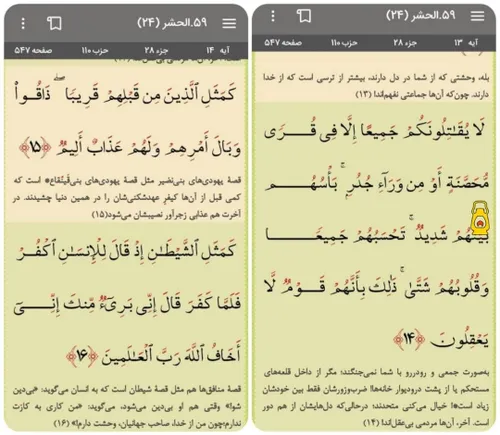 ۵۹.الحشر (۲۴)
آیه ۱۳ جزء ۲۸ حزب ۱۱۰ صفحه ۵۴۷
بله، وحشتی که از شما در دل دارند، بیشتر از ترسی است که از خدا
دارند. چون‌که آن‌ها جماعتی نفهم‌اند! (۱۳)
لَا يُقَـٰتِلُونَكُمْ جَمِيعًا إِلَّا فِى قُرًى
مُّحَصَّنَةٍ أَوْ مِن وَرَآءِ جُدُرٍۭ ۚ بَأْسُهُم
بَيْنَهُمْ شَدِيدٌ ۚ تَحْسَبُهُمْ جَمِيعًا
وَقُلُوبُهُمْ شَتَّىٰ ۚ ذَٰلِكَ بِأَنَّهُمْ قَوْمٌ لَّا
يَعْقِلُونَ ﴿۱۴﴾
به‌صورت جمعی و رودررو با شما نمی‌جنگند؛ مگر از داخل قلعه‌های
مستحکم یا از پشت درودیوار خانه‌ها! ضرب‌وزورشان فقط بین خودشان
زیاد است! خیال می‌کنی متحدند؛ درحالی‌که دل‌هایشان از هم دور
است. آخر، آن‌ها مردمی بی‌عقل‌اند! (۱۴)
۵۹.الحشر (۲۴)
آیه ۱۴ جزء ۲۸ حزب ۱۱۰ صفحه ۵۴۷
كَمَثَلِ ٱلَّذِينَ مِن قَبْلِهِمْ قَرِيبًا ۖ ذَاقُوا۟
وَبَالَ أَمْرِهِمْ وَلَهُمْ عَذَابٌ أَلِيمٌ ﴿۱۵﴾
قصهٔ یهودی‌های بنی‌نضیر مثل قصهٔ یهودی‌های بنی‌قَینُقاع* است که
کمی قبل از آن‌ها کیفرِ عهدشکنی‌شان را در همین دنیا چشیدند. در
آخرت هم عذابی زجرآور نصیبشان می‌شود(۱۵)
كَمَثَلِ ٱلشَّيْطَـٰنِ إِذْ قَالَ لِلْإِنسَـٰنِ ٱكْفُرْ
فَلَمَّا كَفَرَ قَالَ إِنِّى بَرِىٓءٌ مِّنكَ إِنِّىٓ
أَخَافُ ٱللَّهَ رَبَّ ٱلْعَـٰلَمِينَ ﴿۱۶﴾
قصهٔ منافق‌ها هم مثل قصهٔ شیطان است که به انسان می‌گوید: «بی‌دین
شو!» وقتی هم او بی‌دین می‌شود، می‌گوید: «من کاری به کارت
ندارم؛چون من از خدا، صاحب جهانیان، وحشت دارم!» (۱۶)